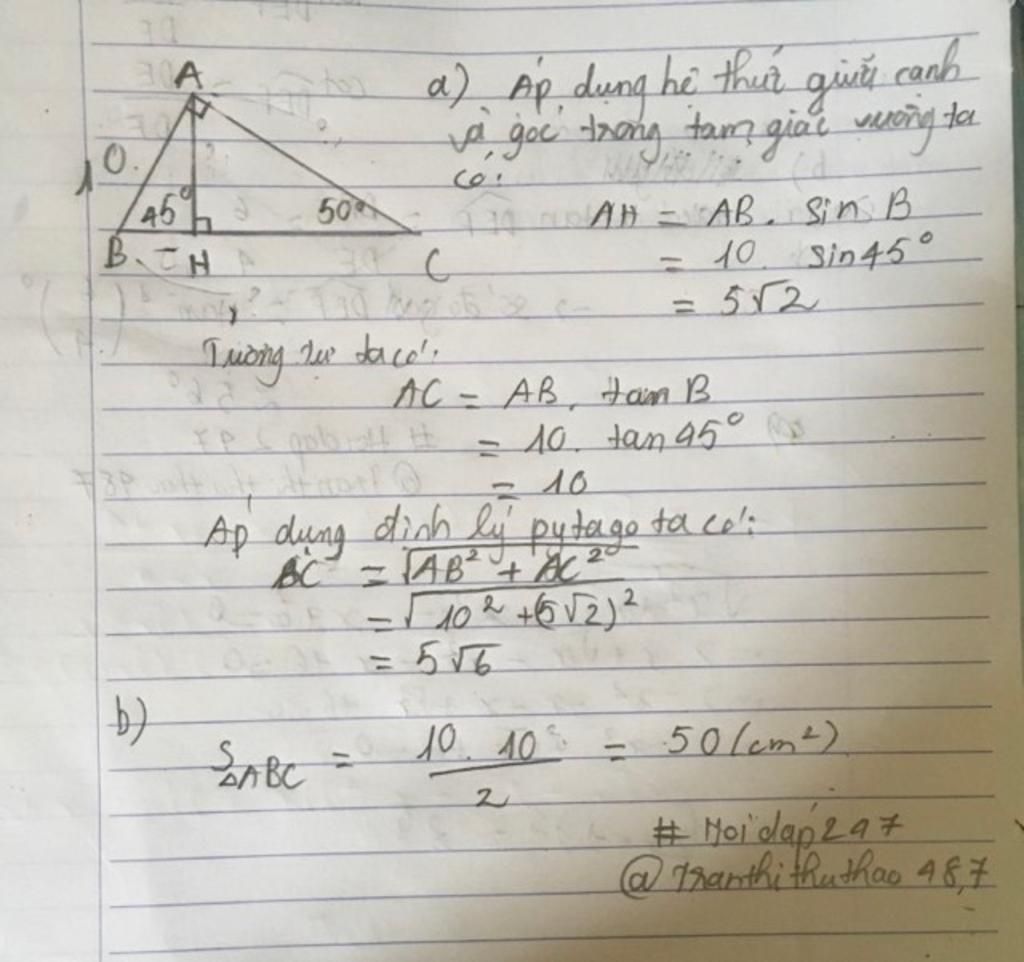 A
10
45°
50°
B
H
C
a) Áp dụng hệ thức giữa cạnh
và góc trong tam giác vuông ta
có:
AH = AB. sin B
= 10 sin 45°
= 5√2
Tương tự ta có:
AC = AB. tan B
= 10. tan 45°
= 10
Áp dụng định lý pytago ta có:
BC = √AB² + AC²
= √10² + (5√2)²
= 5√6
b)
S△ABC = 10. 10 / 2 = 50 (cm²)
# Hoidap247
@Tranthithuthao487